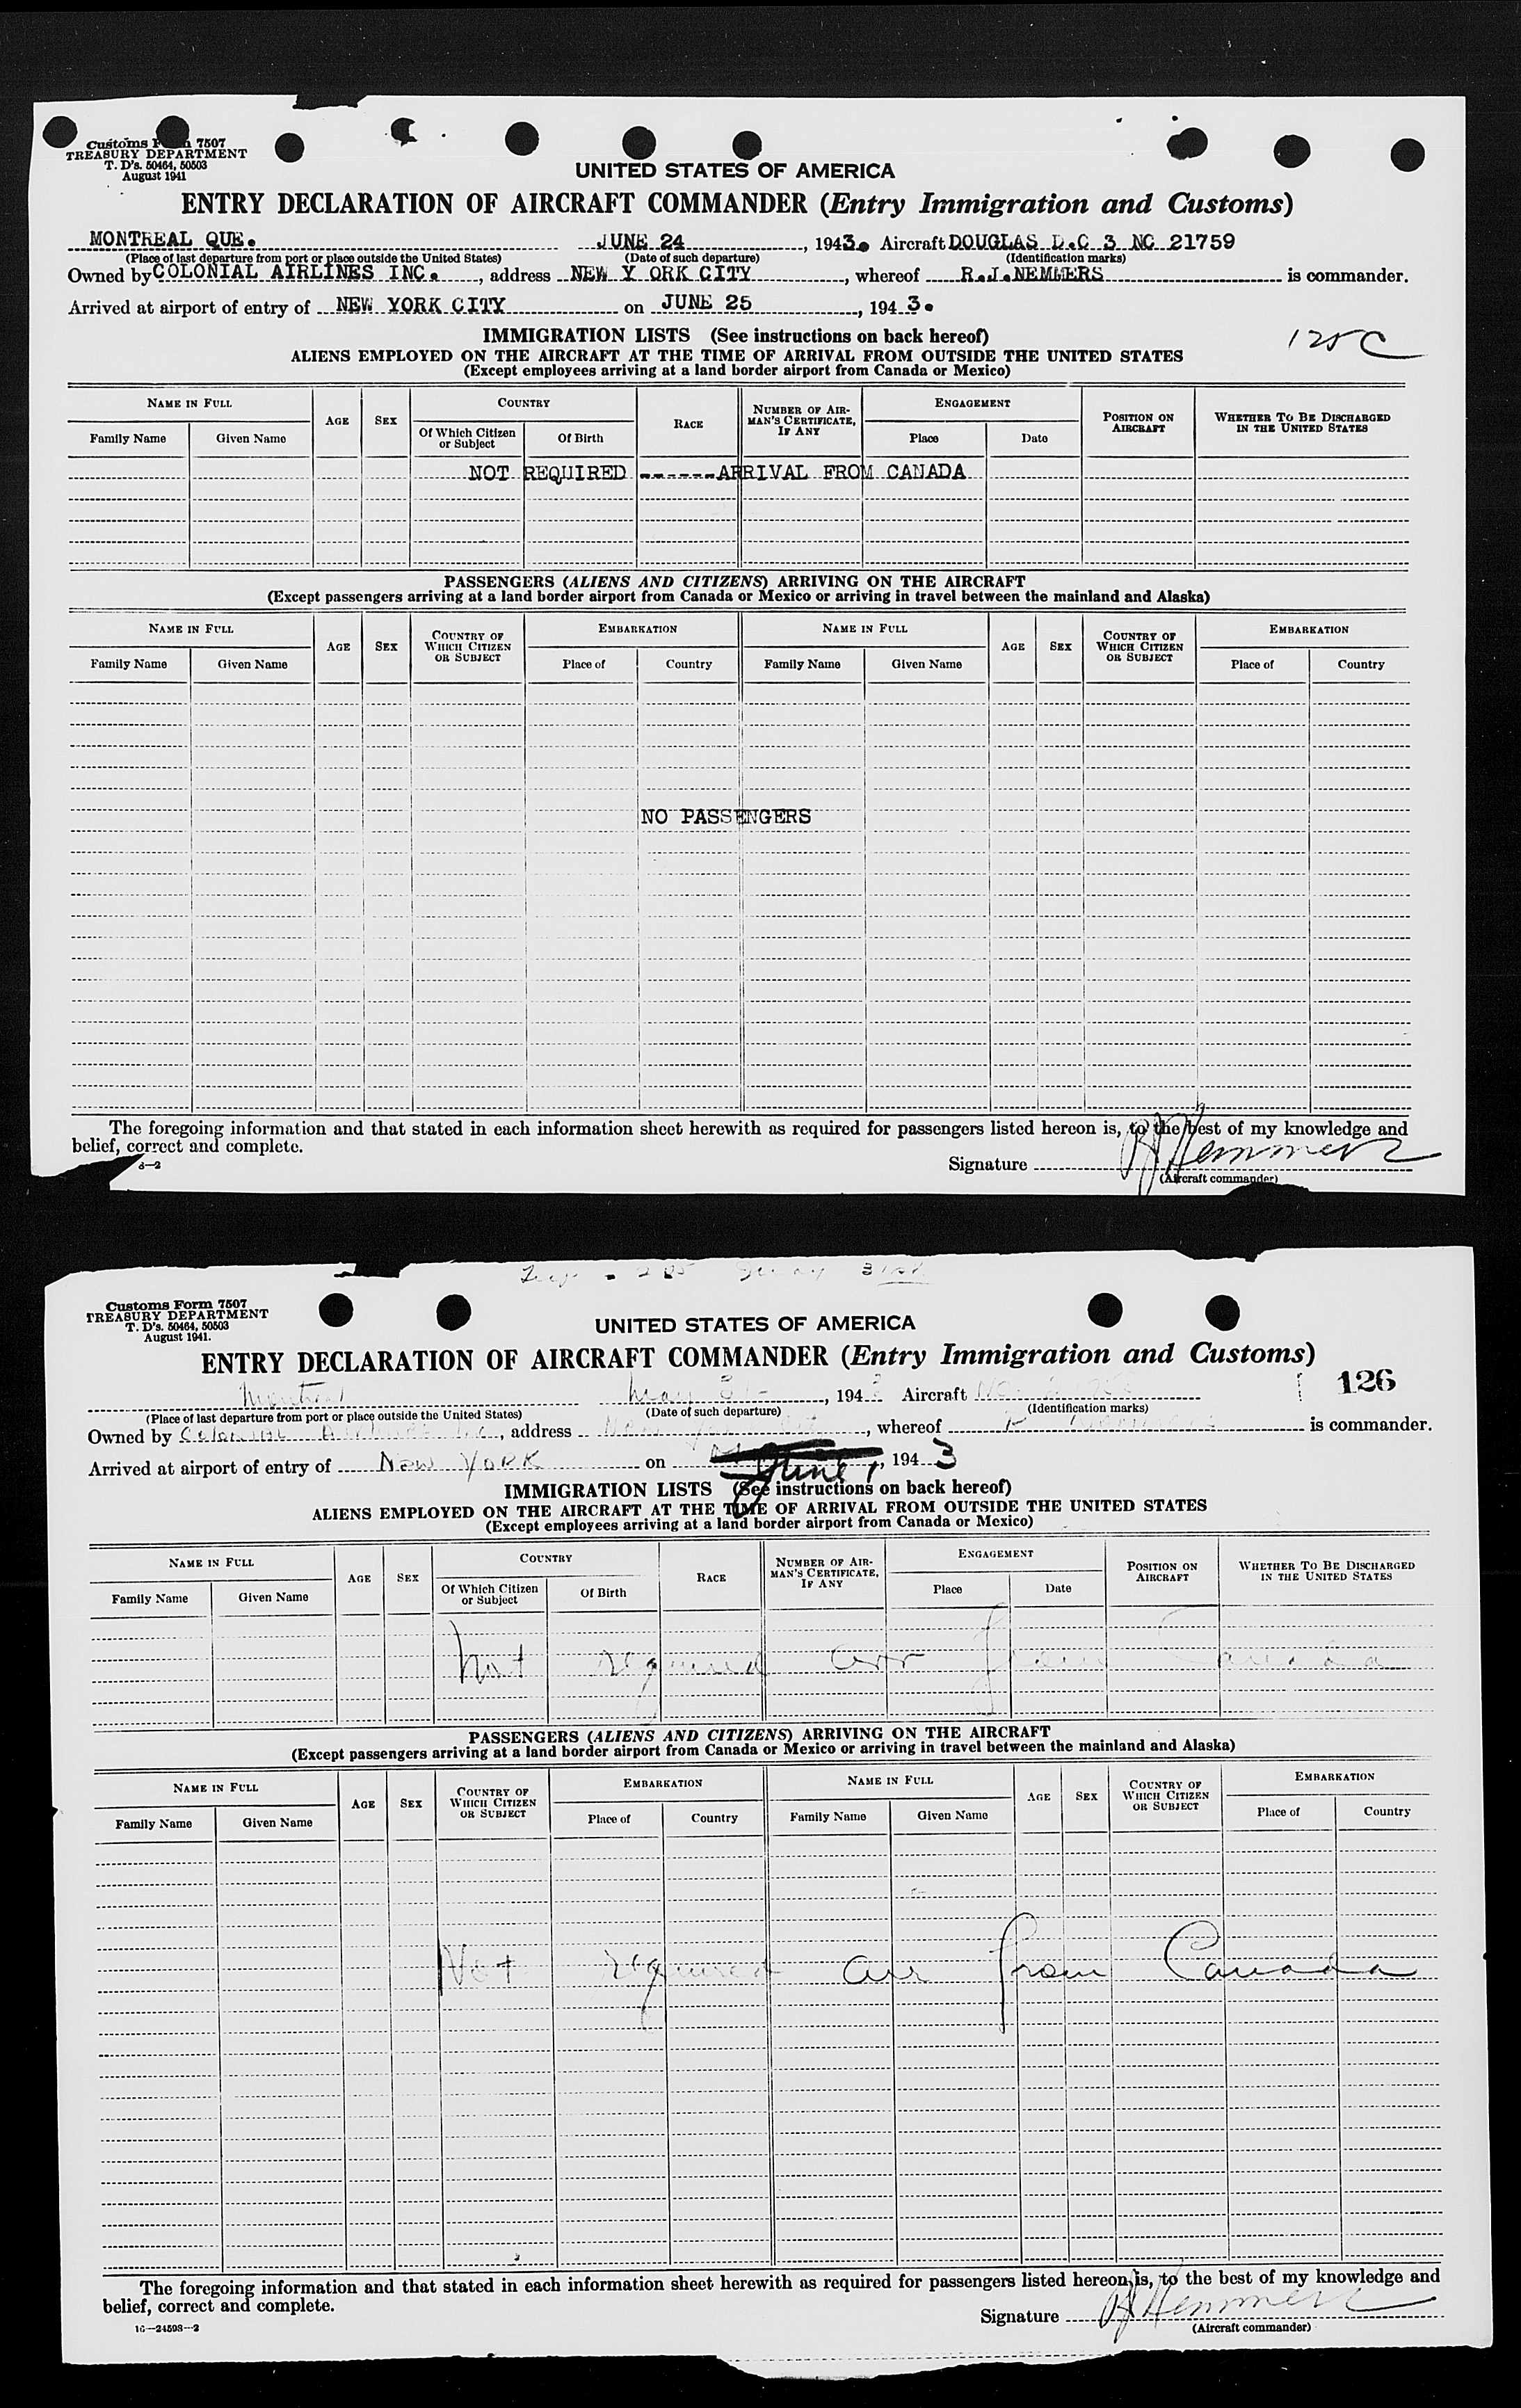 Customs Form 7507
TREASURY DEPARTMENT
T. D's. 50464, 50503
August 1941
UNITED STATES OF AMERICA
ENTRY DECLARATION OF AIRCRAFT COMMANDER (Entry Immigration and Customs)
MONTREAL QUE. JUNE 24, 1943. Aircraft DOUGLAS D.C 3 NC 21759
(Place of last departure from port or place outside the United States) (Date of such departure) (Identification marks)
Owned by COLONIAL AIRLINES INC., address NEW Y ORK CITY, whereof R.J.NEMMERS is commander.
Arrived at airport of entry of NEW YORK CITY on JUNE 25, 1943.
IMMIGRATION LISTS (See instructions on back hereof)
125 C
ALIENS EMPLOYED ON THE AIRCRAFT AT THE TIME OF ARRIVAL FROM OUTSIDE THE UNITED STATES
(Except employees arriving at a land border airport from Canada or Mexico)
NAME IN FULL AGE SEX COUNTRY RACE NUMBER OF AIRMAN'S CERTIFICATE, IF ANY ENGAGEMENT POSITION ON AIRCRAFT WHETHER TO BE DISCHARGED IN THE UNITED STATES
Family Name Given Name Of Which Citizen or Subject Of Birth Place Date
NOT REQUIRED ------ARRIVAL FROM CANADA
PASSENGERS (ALIENS AND CITIZENS) ARRIVING ON THE AIRCRAFT
(Except passengers arriving at a land border airport from Canada or Mexico or arriving in travel between the mainland and Alaska)
NAME IN FULL AGE SEX COUNTRY OF WHICH CITIZEN OR SUBJECT EMBARKATION NAME IN FULL AGE SEX COUNTRY OF WHICH CITIZEN OR SUBJECT EMBARKATION
Family Name Given Name Place of Country Family Name Given Name Place of Country
NO PASSENGERS
The foregoing information and that stated in each information sheet herewith as required for passengers listed hereon is, to the best of my knowledge and
belief, correct and complete.
Signature RJ Nemmers
(Aircraft commander)
Customs Form 7507
TREASURY DEPARTMENT
T. D's. 50464, 50503
August 1941.
UNITED STATES OF AMERICA
ENTRY DECLARATION OF AIRCRAFT COMMANDER (Entry Immigration and Customs)
126
Montreal May 31, 194 Aircraft
(Place of last departure from port or place outside the United States) (Date of such departure) (Identification marks)
Owned by Colonial Airlines Inc, address New York, whereof R Nemmers is commander.
Arrived at airport of entry of New YORK on June 1, 1943
IMMIGRATION LISTS (See instructions on back hereof)
ALIENS EMPLOYED ON THE AIRCRAFT AT THE TIME OF ARRIVAL FROM OUTSIDE THE UNITED STATES
(Except employees arriving at a land border airport from Canada or Mexico)
NAME IN FULL AGE SEX COUNTRY RACE NUMBER OF AIRMAN'S CERTIFICATE, IF ANY ENGAGEMENT POSITION ON AIRCRAFT WHETHER TO BE DISCHARGED IN THE UNITED STATES
Family Name Given Name Of Which Citizen or Subject Of Birth Place Date
Not required arr from Canada
PASSENGERS (ALIENS AND CITIZENS) ARRIVING ON THE AIRCRAFT
(Except passengers arriving at a land border airport from Canada or Mexico or arriving in travel between the mainland and Alaska)
NAME IN FULL AGE SEX COUNTRY OF WHICH CITIZEN OR SUBJECT EMBARKATION NAME IN FULL AGE SEX COUNTRY OF WHICH CITIZEN OR SUBJECT EMBARKATION
Family Name Given Name Place of Country Family Name Given Name Place of Country
Not required arr from Canada
The foregoing information and that stated in each information sheet herewith as required for passengers listed hereon is, to the best of my knowledge and
belief, correct and complete.
Signature RJ Nemmers
16—24598—2
(Aircraft commander)